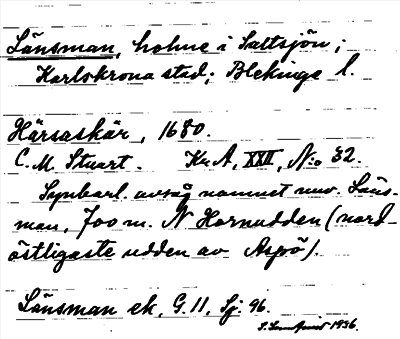 Länsman, holme i Saltsjön;
Karlskrona stad; Blekinge l.
Härsaskär, 1680.
C. M. Stuart. Kr. A, XXII, N:o 32.
Synbarl. avsåg namnet nuv. Läns-
man, 700 m. N Hornudden (nord-
östligaste udden av Aspö).
Länsman ek, G. 11, Sj. 96.
1936.